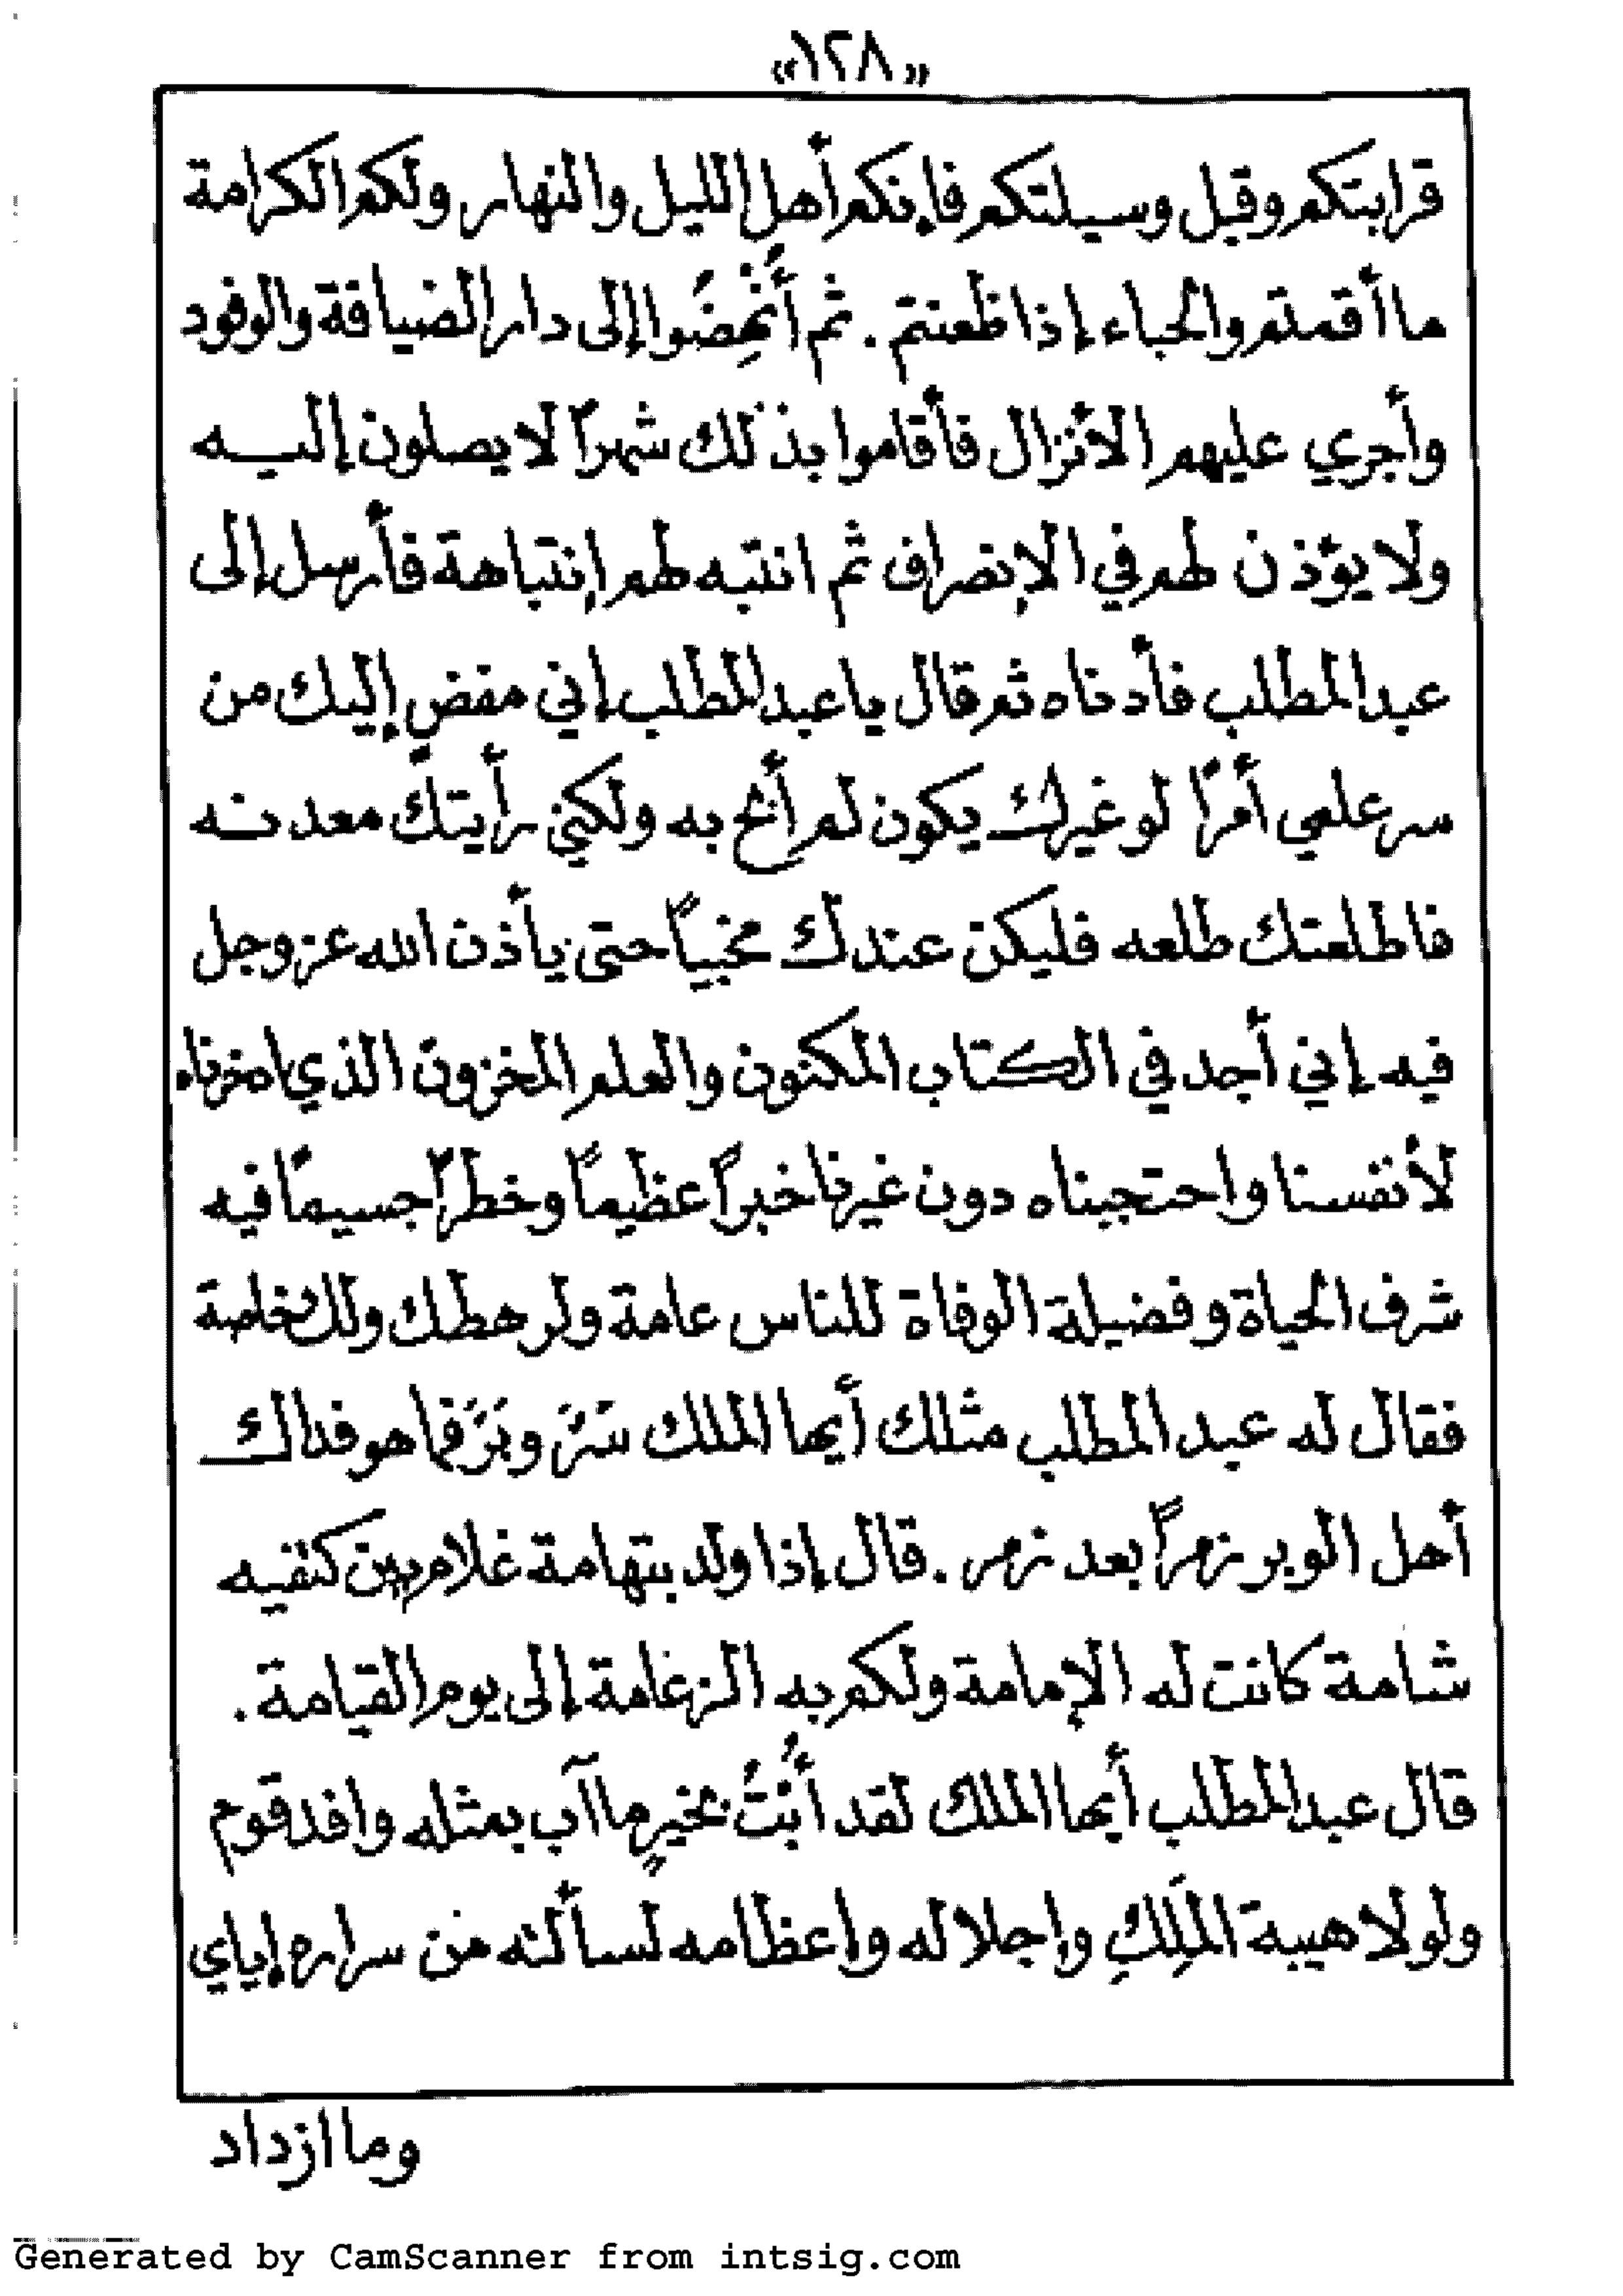 «١٢٨»
قرابتكم وقبل وسيلتكم فإنكم أهل الليل والنهار ولكم الكرامة
ما أقمتم والحباء إذا ظعنتم. ثم أُنْهِضُوا إلى دار الضيافة والوفود
وأجري عليهم الأنزال فأقاموا بذلك شهراً لا يصلون إليه
ولا يؤذن لهم في الإنصراف ثم انتبه لهم إنتباهة فأرسل إلى
عبد المطلب فأدناه ثم قال يا عبد المطلب إني مفضٍ إليك من
سر علمي أمراً لو غيرك يكون لم أبح به ولكني رأيتك معدنه
فاطلعتك طلعه فليكن عندك مخبياً حتى يأذن الله عز وجل
فيه إني أجد في الكتاب المكنون والعلم المخزون الذي اخترناه
لأنفسنا واحتجبناه دون غيرنا خبراً عظيماً وخطراً جسيماً فيه
شرف الحياة وفضيلة الوفاة للناس عامة ولرهطك ولك خاصة
فقال له عبد المطلب مثلك أيها الملك سَرَّ وبَرَّ فما هو فداك
أهل الوبر زمراً بعد زمر. قال إذا ولد بتهامة غلام بين كتفيه
شامة كانت له الإمامة ولكم به الزعامة إلى يوم القيامة.
قال عبد المطلب أيها الملك لقد أُبْتُ بخيرٍ ما آب بمثله وافد قوم
ولولا هيبة المَلِكِ وإجلاله وإعظامه لسألته من سراره إياي
وما ازداد
Generated by CamScanner from intsig.com